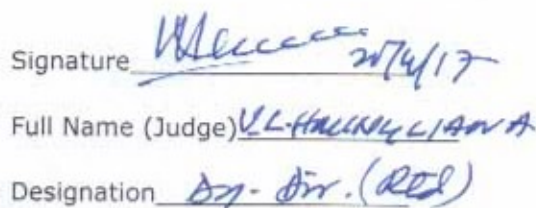 Signature 20/4/17
Full Name (Judge) V.L. HMINGLIANA
Designation Dy. Dir. (Rtd)